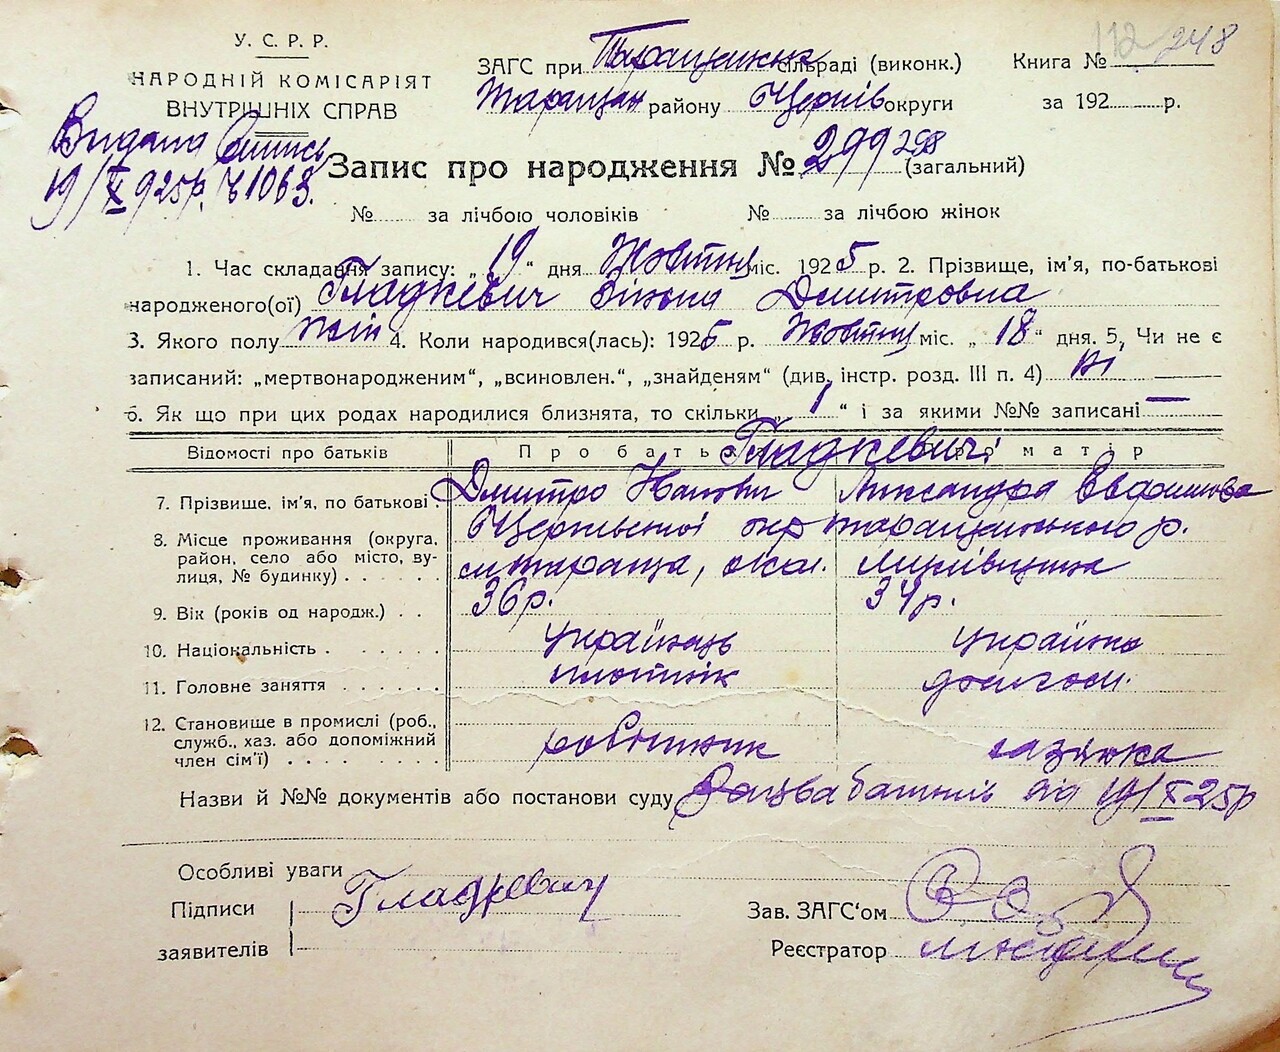 112 248
У. С. Р. Р.
НАРОДНІЙ КОМІСАРІЯТ
ВНУТРІШНІХ СПРАВ
ЗАГС при Таращанск сільраді (виконк.) Книга №
Таращан району округи за 192 р.
Видана
19/X 925р. 1063.
Запис про народження № 299 298 (загальний)
№ за лічбою чоловіків № за лічбою жінок
1. Час складання запису: „ 19 “ дня Жовтня міс. 1925 р. 2. Прізвище, ім'я, по-батькові
народженого(ої) Гладкевич Зінаіда Дмитровна
3. Якого полу жін 4. Коли народився(лась): 1925 р. Жовтня міс. „ 18 “ дня. 5. Чи не є
записаний: „мертвонародженим“, „всиновлен.“, „знайденям“ (див. інстр. розд. III п. 4) ні —
6. Як що при цих родах народилися близнята, то скільки „ 1 “ і за якими №№ записані —
Відомості про батьків Про батька Про матір
Гладкевичі
7. Прізвище, ім'я, по батькові . Дмитро Александра
8. Місце проживання (округа, район, село або місто, вулиця, № будинку) . . . . . окр таращанського р.
м тараща,
9. Вік (років од народж.) . . 36р. 34р.
10. Національність . . . . . українець українка
11. Головне заняття . . . . . . плотнік домгосп.
12. Становище в промислі (роб., служб., хаз. або допоміжний член сім'ї) . . . . . . . . робітник хазяйка
Назви й №№ документів або постанови суду Заява батьків від 19/X 25р
Особливі уваги
Підписи Гладкевич Зав. ЗАГС'ом
заявителів Реєстратор